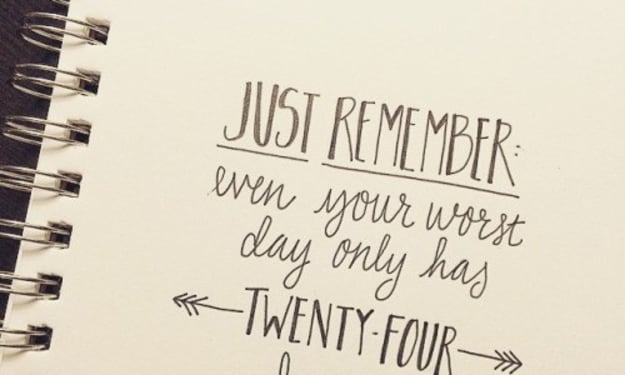 JUST REMEMBER:
even your worst
day only has
TWENTY-FOUR